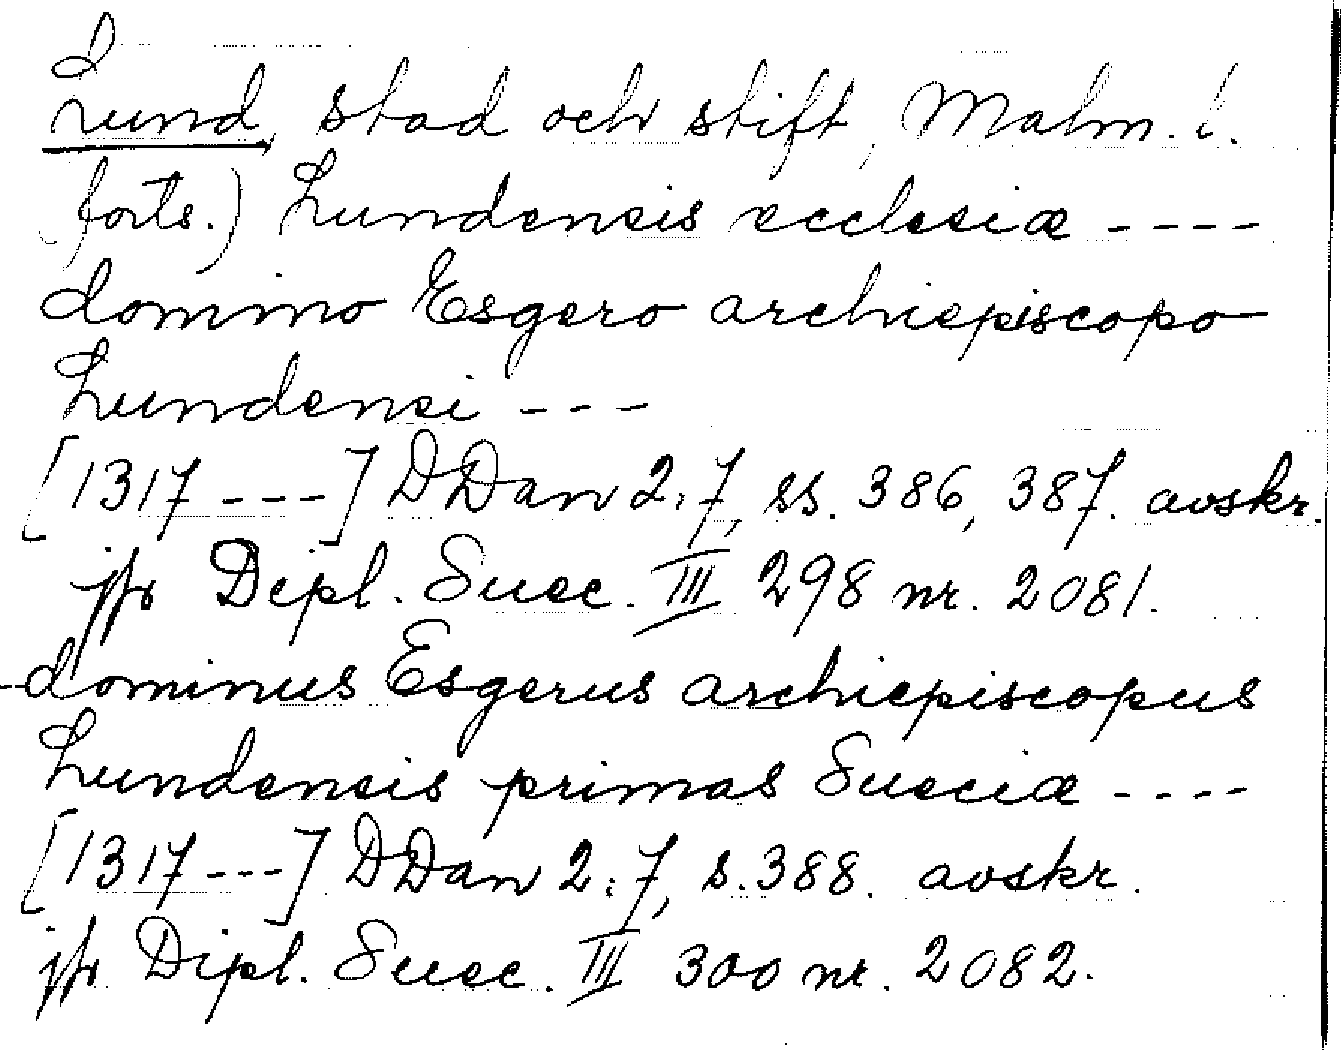 Lund, stad och stift, Malm. l.
(forts.) Lundensis ecclesiæ ----
domino Esgero archiepiscopo
Lundensi ---
[1317 ---] DDan 2:7, ss. 386, 387. avskr.
jfr Dipl. Suec. III 298 nr. 2081.
--dominus Esgerus archiepiscopus
Lundensis primas Sueciæ ----
[1317 ---] DDan 2:7, s. 388. avskr.
jfr Dipl. Suec. III 300 nr. 2082.